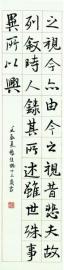 之視今亦由今之視昔悲夫故
列敘時人錄其所述雖世殊事
異所以興